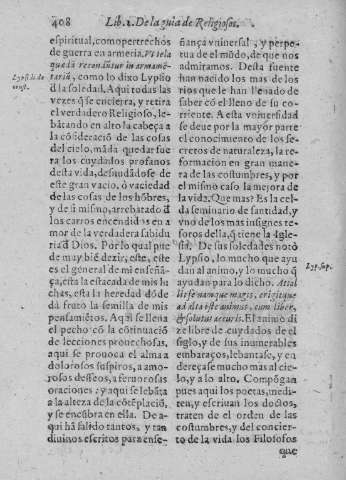 408 Lib. 1. De la guia de Religiosos.
espiritual, como pertrechos
de guerra en armeria. Vt tela
quædã reconduntur in armamẽ-
tariũ, como lo dixo Lypsio
Lypsi. li. de
const.
d la soledad. Aqui todas las
vezes q̃ se encierra, y retira
el verdadero Religioso, le-
bãtando en alto la cabeça a
la cõsideraciõ de las cosas
del cielo, mãda quedar fue
ra los cuydados profanos
desta vida, desnudãdose de
este gran vacio, ò vaciedad
de las cosas de los hõbres,
y de si mismo, arrebatado ẽ
los carros encendidos en a
mor de la verdadera sabidu
ria d̃ Dios. Por lo qual pue
de muy biẽ dezir, este, este
es el general de mi enseñã-
ça, esta la estacada de mis lu
chas, esta la heredad dõde
dà fruto la semilla de mis
pensamiẽtos. Aqui se llena
el pecho cõ la cõtinuaciõ
de lecciones prouechosas,
aqui se prouoca el alma a
dolorosos suspiros, a amo-
rosos desseos, a feruorosas
oraciones: y aqui se lebãta
a la alteza de la cõtẽplaciõ,
y se encũbra en ella. De a-
qui hã salido tantos, y tan
diuinos escritos para ense-
ñança vniuersal, y perpe-
tua de el mũdo, de que nos
admiramos. Desta fuente
han nacido los mas de los
rios que le han llenado de
saber cõ el lleno de su co-
rriente. A esta vniuersidad
se deue por la mayor parte
el conocimiento de los se-
cretos de naturaleza, la re-
formacion en gran mane-
ra de las costumbres, y por
el mismo caso la mejora de
la vida. Que mas? Es la cel-
da seminario de santidad, y
vno de los mas insignes te-
soros della, q̃ tiene la Igle-
sia. De sus soledades notò
Lypsio, lo mucho que ayu
Lyp. sup.
dan al animo, y lo mucho q̃
ayudan para lo dicho. Attol
lit se namque magis, erigitque
ad alta iste animus, cum liber,
& solutus à curis. El animo di
ze libre de cuydados de el
siglo, y de sus innumerables
embaraços, lebantase, y en
dereçase mucho mas al cie-
lo, y a lo alto. Compõgan
pues aqui los poetas, medi-
ten, y escriuan los doctos,
traten de el orden de las
costumbres, y del concier-
to de la vida los Filosofos
que